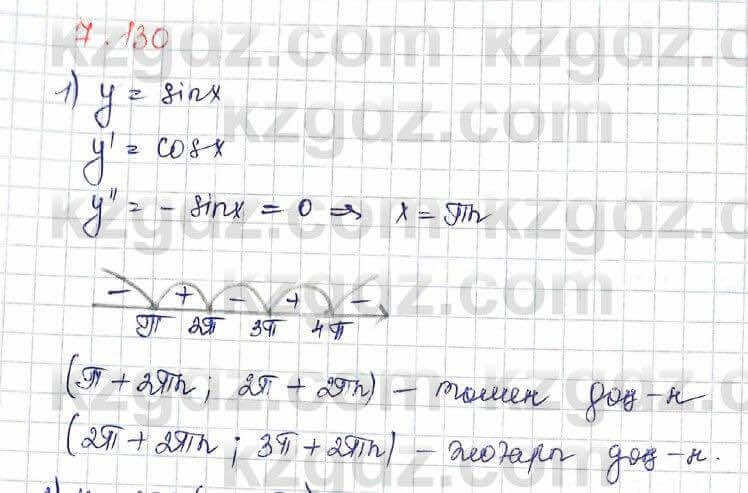 7.130
1) y = sinx
y' = cosx
y'' = - sinx = 0 ⇒ x = πn
- + - + -
π 2π 3π 4π
(π + 2πn ; 2π + 2πn) – томен дөң-к
(2π + 2πn ; 3π + 2πn) – жоғары дөң-к.
kzgdz.com